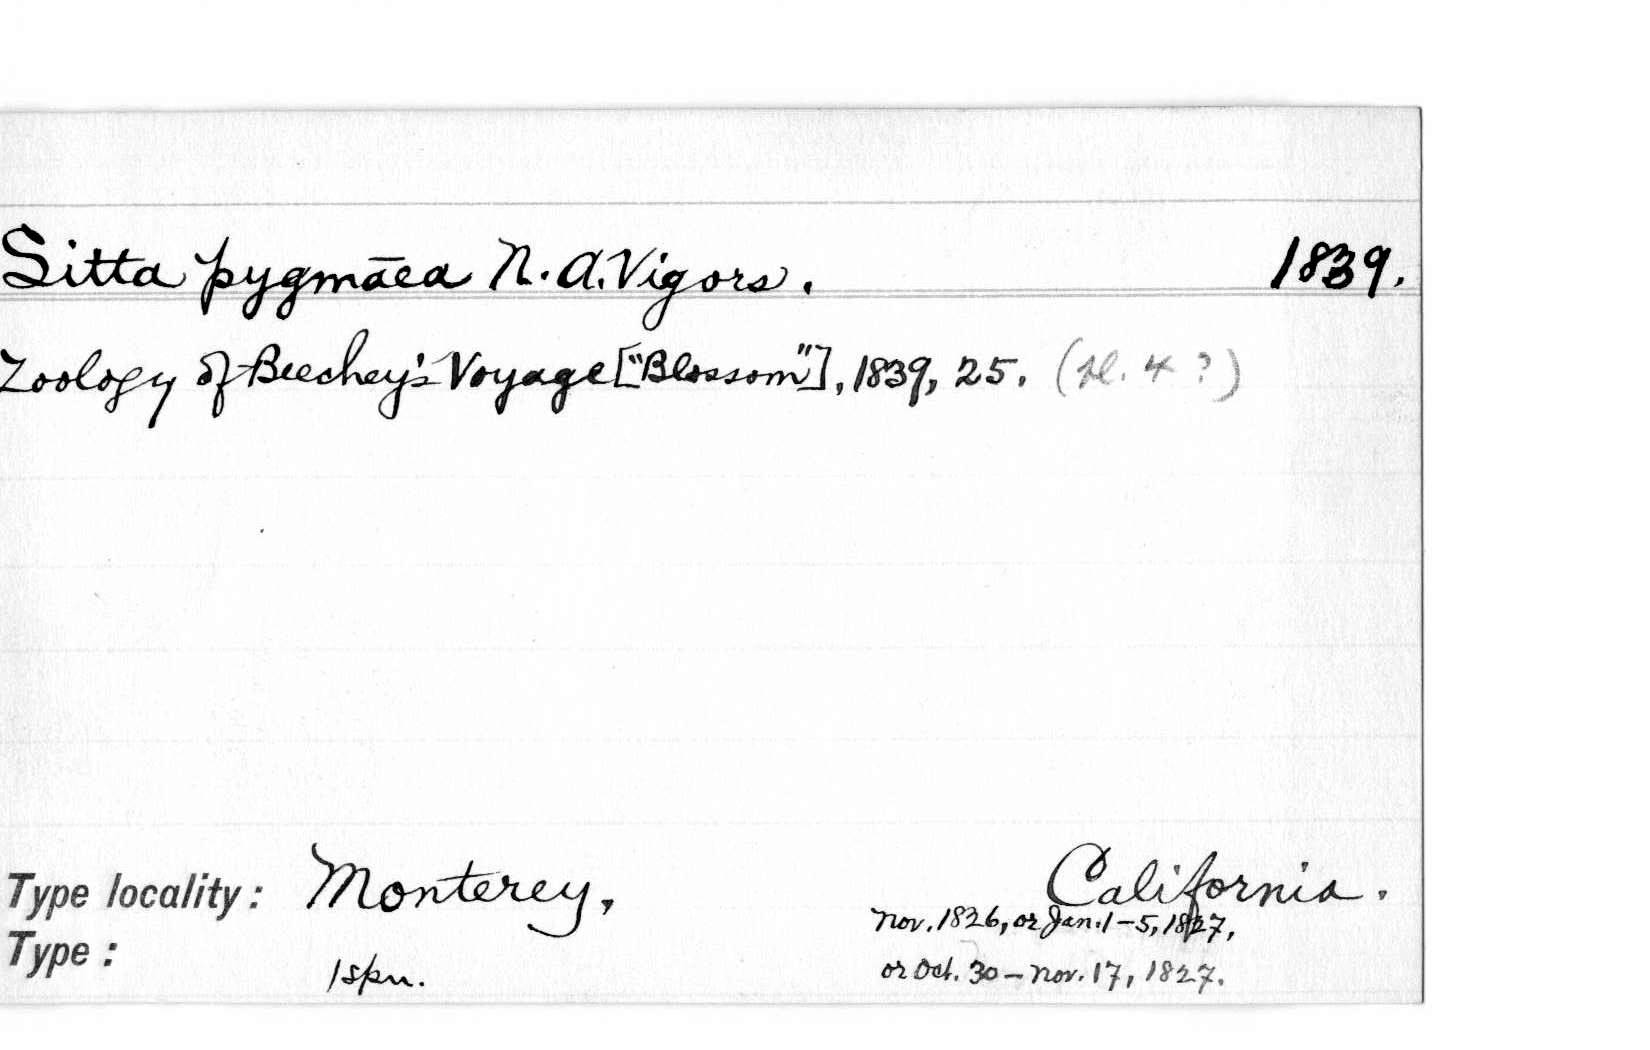 Sitta pygmāea N. A. Vigors. 1839.
Zoology of Beechey's Voyage ["Blossom"], 1839, 25. (pl. 4 ?)
Type locality: Monterey, California.
Nov. 1826, or Jan. 1-5, 1827,
Type: 1 spn. or Oct. 30 - Nov. 17, 1827.